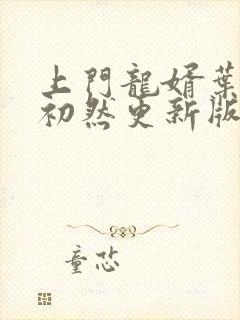 上門龍婿葉
初然更新版
童恣